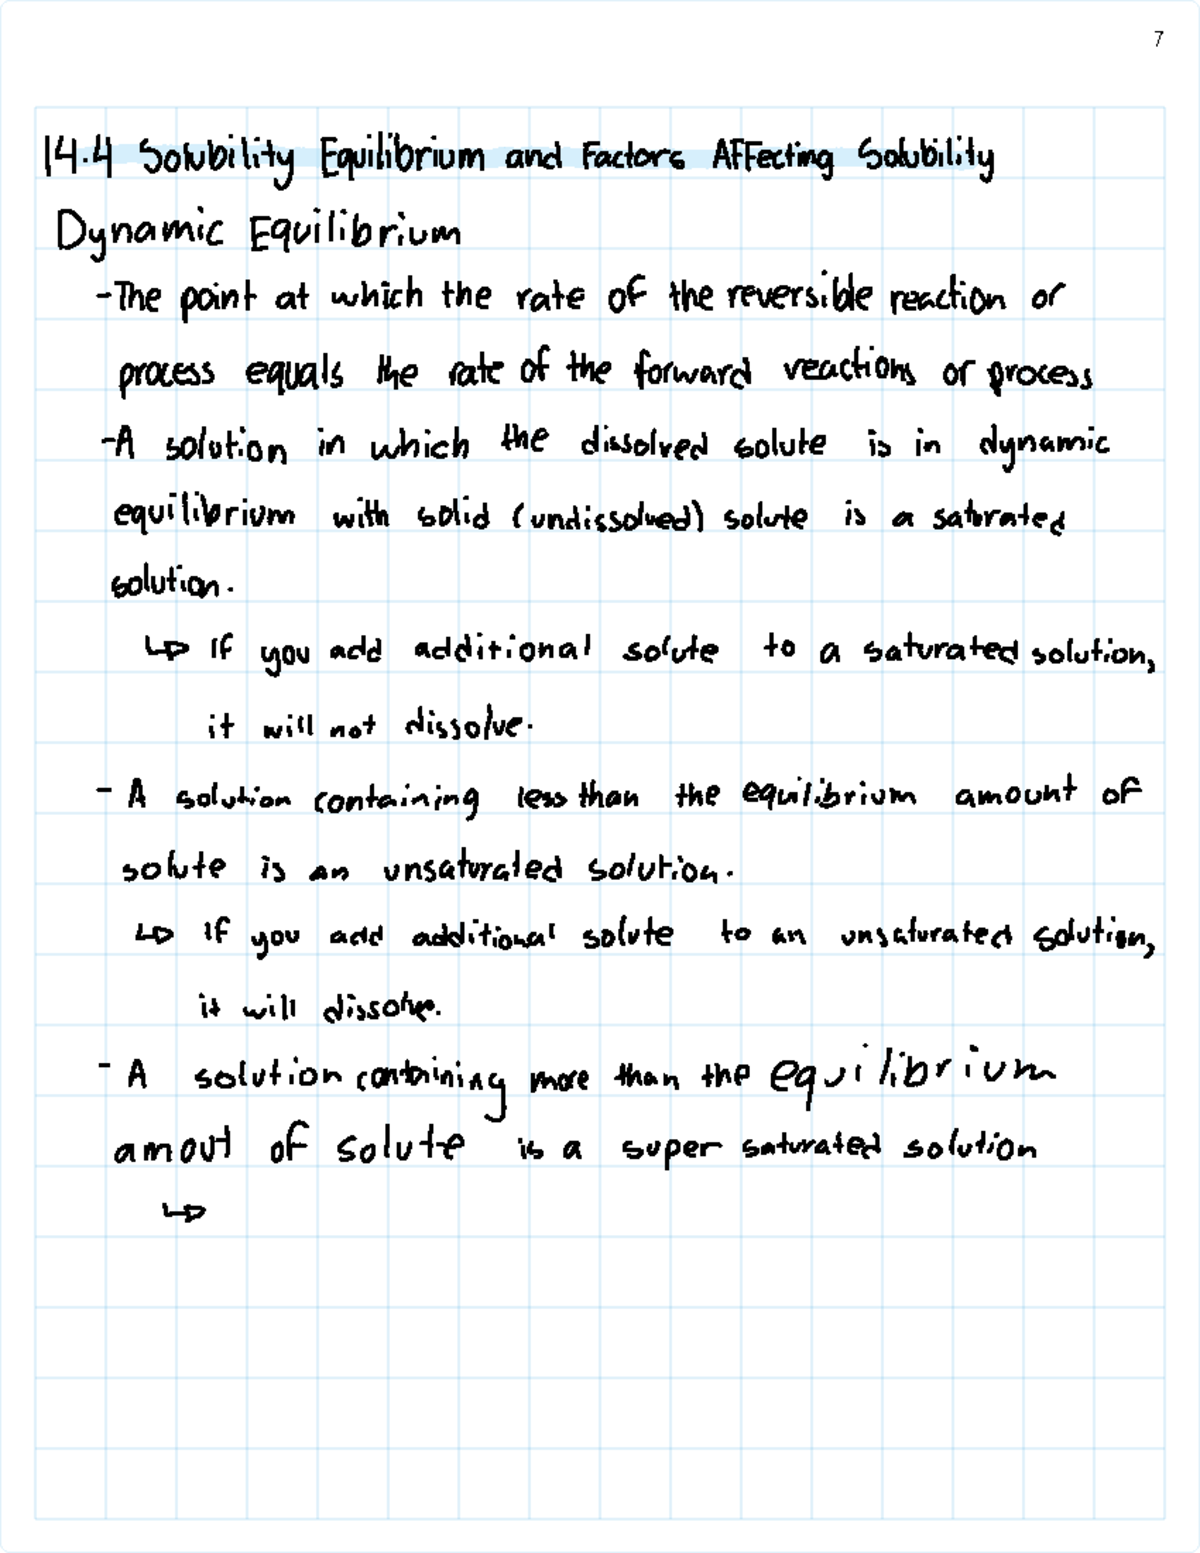 7
14.4 Solubility Equilibrium and Factors Affecting Solubility
Dynamic Equilibrium
-The point at which the rate of the reversible reaction or
process equals the rate of the forward reactions or process
-A solution in which the dissolved solute is in dynamic
equilibrium with solid (undissolved) solute is a saturated
solution.
↳ If you add additional solute to a saturated solution,
it will not dissolve.
- A solution containing less than the equilibrium amount of
solute is an unsaturated solution.
↳ If you add additional solute to an unsaturated solution,
it will dissolve.
- A solution containing more than the equilibrium
amout of solute is a super saturated solution
↳